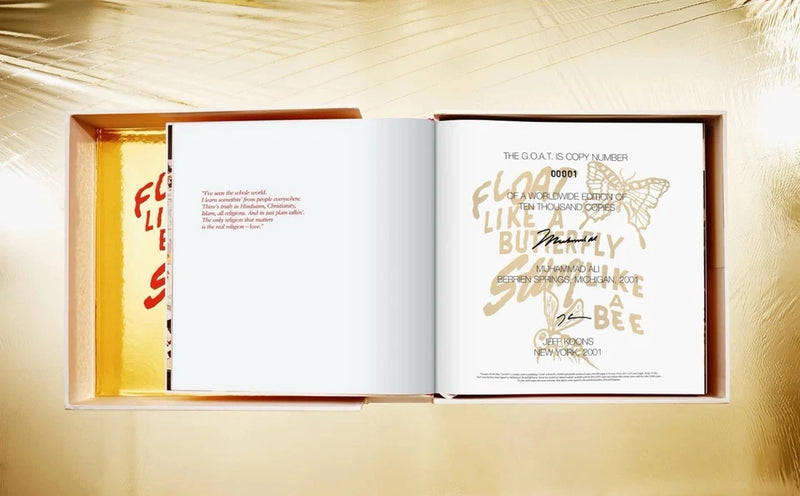 FLOAT
LIKE
"I've seen the whole world.
I learn somethin' from people everywhere.
There's truth in Hinduism, Christianity,
Islam, all religions. And in just plain talkin'.
The only religion that matters
is the real religion—love."
THE G.O.A.T. IS COPY NUMBER
00001
OF A WORLDWIDE EDITION OF
TEN THOUSAND COPIES
Muhammad Ali
MUHAMMAD ALI
BERRIEN SPRINGS, MICHIGAN, 2001
JEFF KOONS
NEW YORK, 2001
FLOAT
LIKE A
BUTTERFLY
STING LIKE
A
BEE